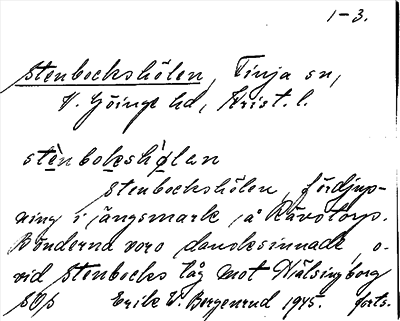 1-3.
Stenbockshölen, Finja sn,
V. Göinge hd, Krist. l.
stènbokshø̀lan
Stenbockshölen, fördjup-
ning i ängsmark, å Rävstorp.
Bönderna voro dansksinnade, o-
vid Stenbocks tåg mot Hälsingborg
sOs Erik V. Bergenrud 1945. forts.